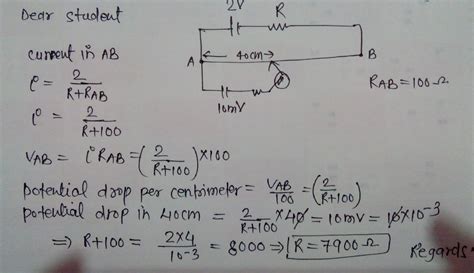 Dear Student
2V
R
Current in AB
A
40cm
B
i = 2/(R+RAB)
10mV
G
RAB = 100 Ω
i = 2/(R+100)
VAB = i RAB = (2/(R+100)) × 100
Potential drop per centimeter = VAB/100 = (2/(R+100))
potential drop in 40cm = 2/(R+100) × 40 = 10mV = 10×10⁻³
⇒ R+100 = 2×4/10⁻³ = 8000 ⇒ R = 7900 Ω
Regards